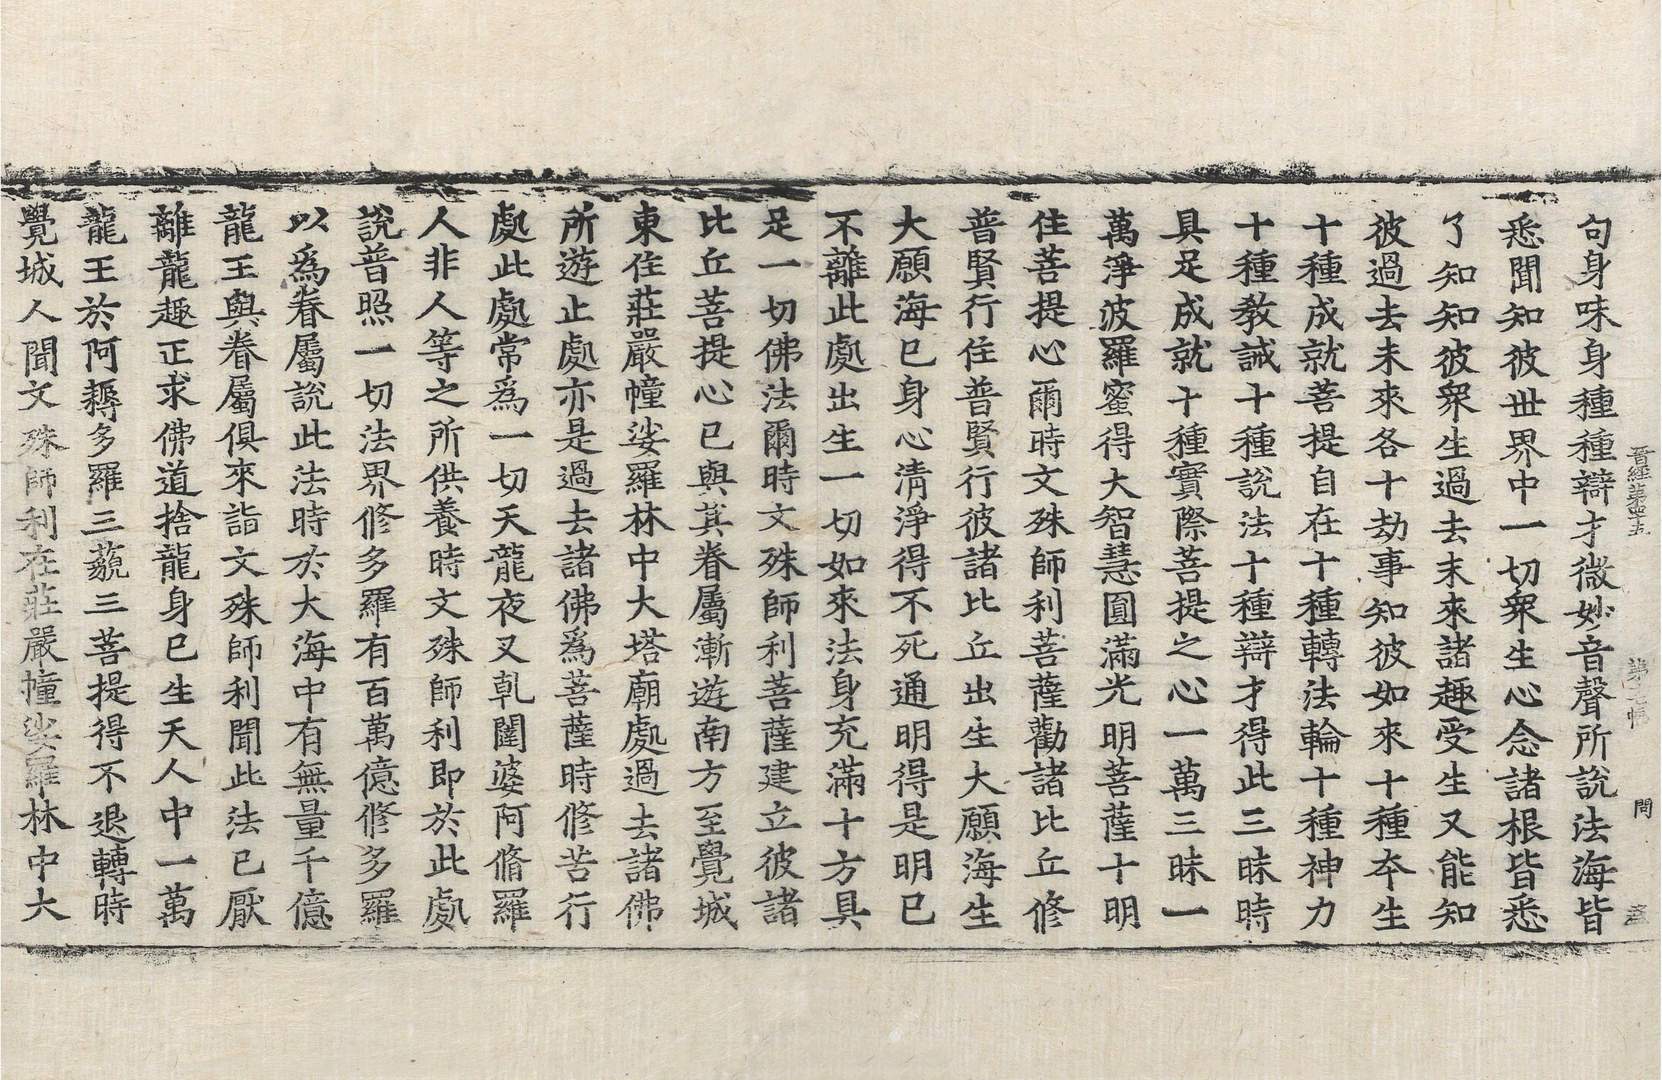 晉經第四十五
第七張
問
句身味身種種辯才微妙音聲所說法海皆
悉聞知彼世界中一切衆生心念諸根皆悉
了知知彼衆生過去未來諸趣受生又能知
彼過去未來各十劫事知彼如來十種本生
十種成就菩提自在十種轉法輪十種神力
十種教誡十種說法十種辯才得此三昧時
具足成就十種實際菩提之心一萬三昧一
萬淨波羅蜜得大智慧圓滿光明菩薩十明
住菩提心爾時文殊師利菩薩勸諸比丘修
普賢行住普賢行彼諸比丘出生大願海生
大願海已身心清淨得不死通明得是明已
不離此處出生一切如來法身充滿十方具
足一切佛法爾時文殊師利菩薩建立彼諸
比丘菩提心已與其眷屬漸遊南方至覺城
東住莊嚴幢娑羅林中大塔廟處過去諸佛
所遊止處亦是過去諸佛爲菩薩時修苦行
處此處常爲一切天龍夜叉乹闥婆阿脩羅
人非人等之所供養時文殊師利即於此處
說普照一切法界修多羅有百萬億修多羅
以爲眷屬說此法時於大海中有無量千億
龍王與眷屬俱來詣文殊師利聞此法已厭
離龍趣正求佛道捨龍身已生天人中一萬
龍王於阿耨多羅三藐三菩提得不退轉時
覺城人聞文殊師利在莊嚴幢娑羅林中大